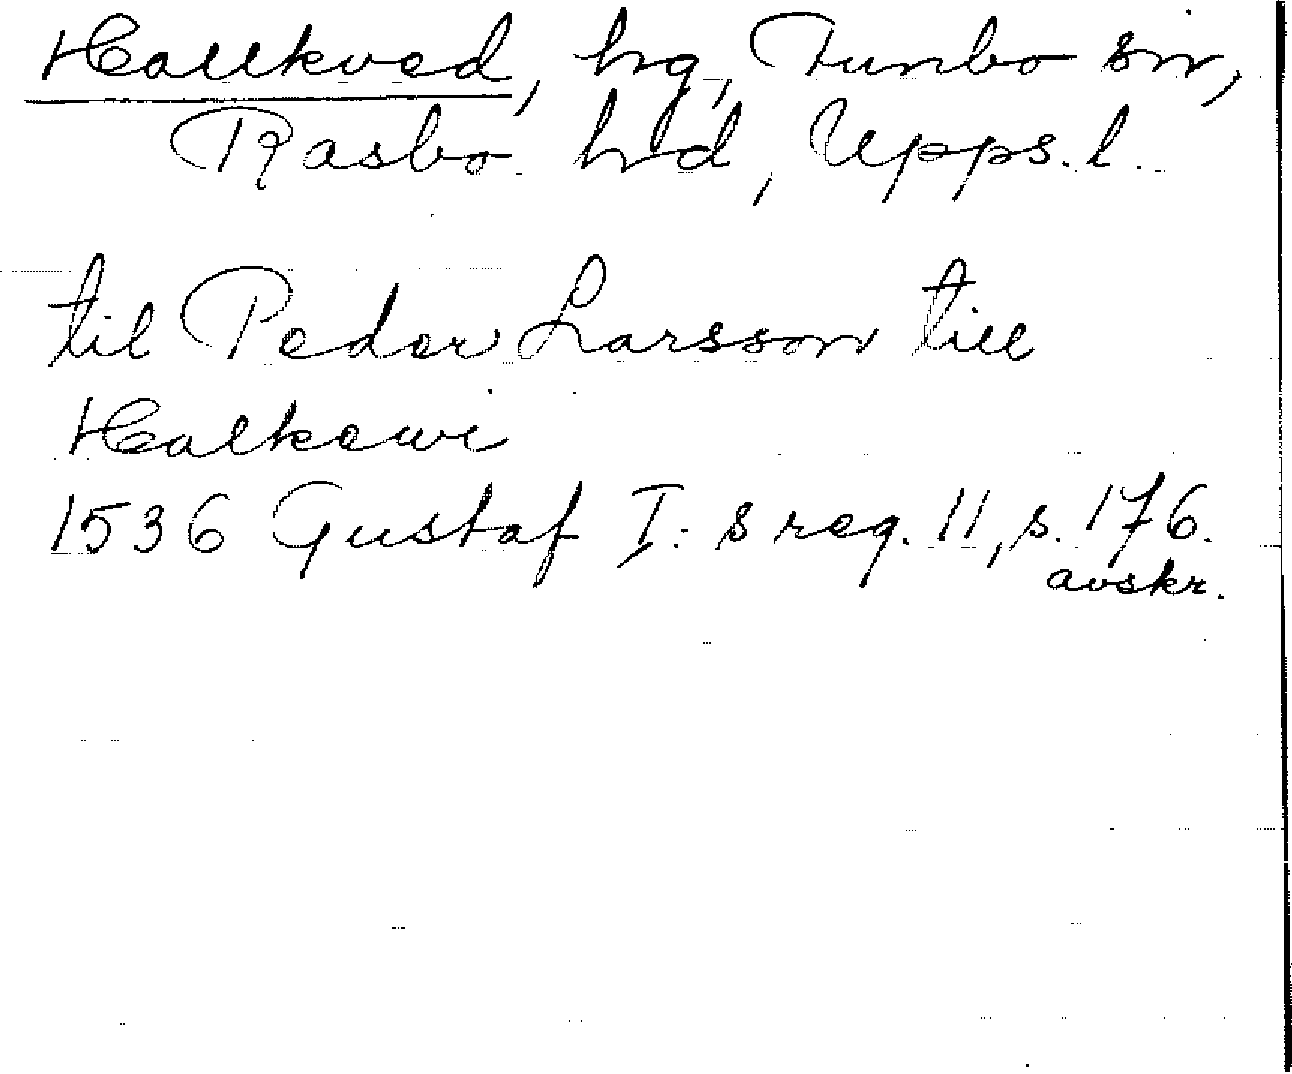 Hallkved, hg, Funbo sn,
Rasbo hd, Upps. l.
til Peder Larsson till
Halkewi
1536 Gustaf I:s reg. 11, s. 176.
avskr.